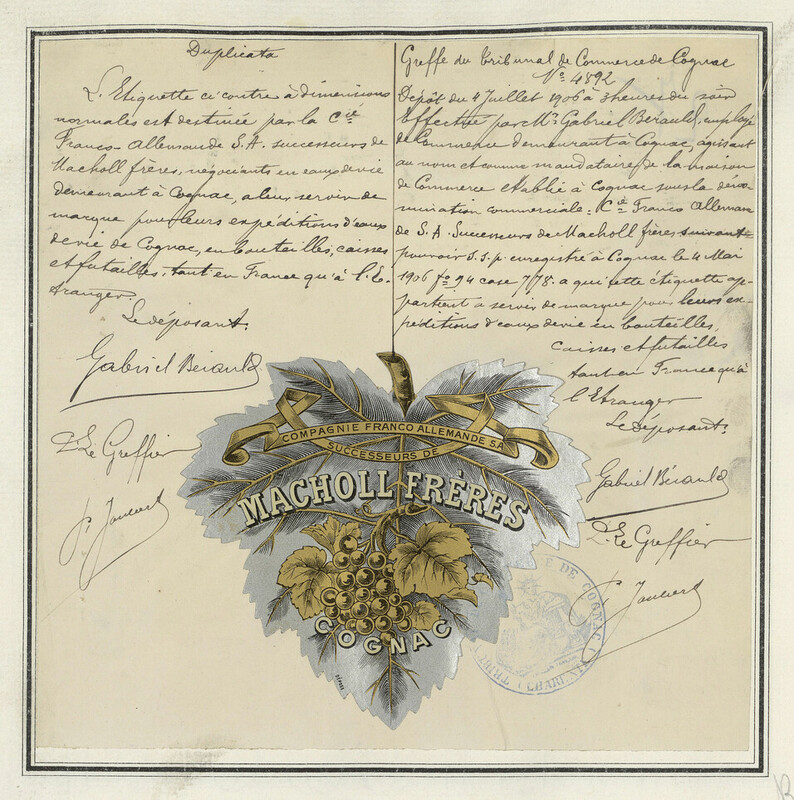 Duplicata
L'Etiquette ci contre à dimensions
normales est destinée par la Cie
Franco-Allemande S.A. successeurs de
Macholl frères, négociants en eaux de vie
demeurant à Cognac, a leur servir de
marque pour leurs expéditions d'eaux
de vie de Cognac, en bouteilles, caisses
et futailles, tant en France qu'à l'E-
tranger.
Le déposant.
Gabriel Bérauld
Le Greffier
Greffe du Tribunal de Commerce de Cognac
No 4892
Dépôt du 4 Juillet 1906 à 3 heures du soir
Effectué par Mr Gabriel Bérauld, employé
de Commerce demeurant à Cognac, agissant
au nom et comme mandataire de la maison
de Commerce établie à Cognac sous la déno-
mination commerciale: Cie Franco Allemande
de S.A. Successeurs de Macholl frères suivant
pouvoir s.s.p. enregistré à Cognac le 4 Mai
1906 fo 94 case 778. a qui cette étiquette ap-
partient a servir de marque pour leurs ex-
péditions d'eaux de vie en bouteilles,
caisses et futailles
tant en France qu'à
l'Etranger
Le déposant.
Gabriel Bérauld
Le Greffier
COMPAGNIE FRANCO ALLEMANDE S.A.
SUCCESSEURS DE
MACHOLL FRÈRES
COGNAC
DÉPOSÉ
DE COGNAC